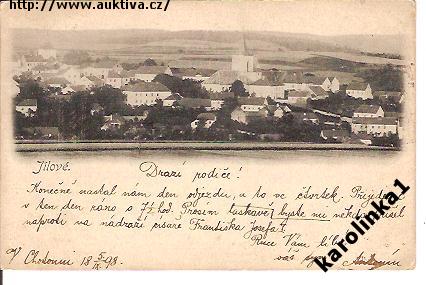 (http://www.auktiva.cz/)
Jílové.
Drazí rodiče!
Konečně nastal nám den odjezdu, a to ve čtvrtek. Přijedu
v ten den ráno o 7½ hod. Prosím laskavě, byste mi někdo přišel
naproti na nádraží Františka Josefa.
Ruce Vám líbá
váš syn Antonín
V 18 5/IX 98.
karolinka1